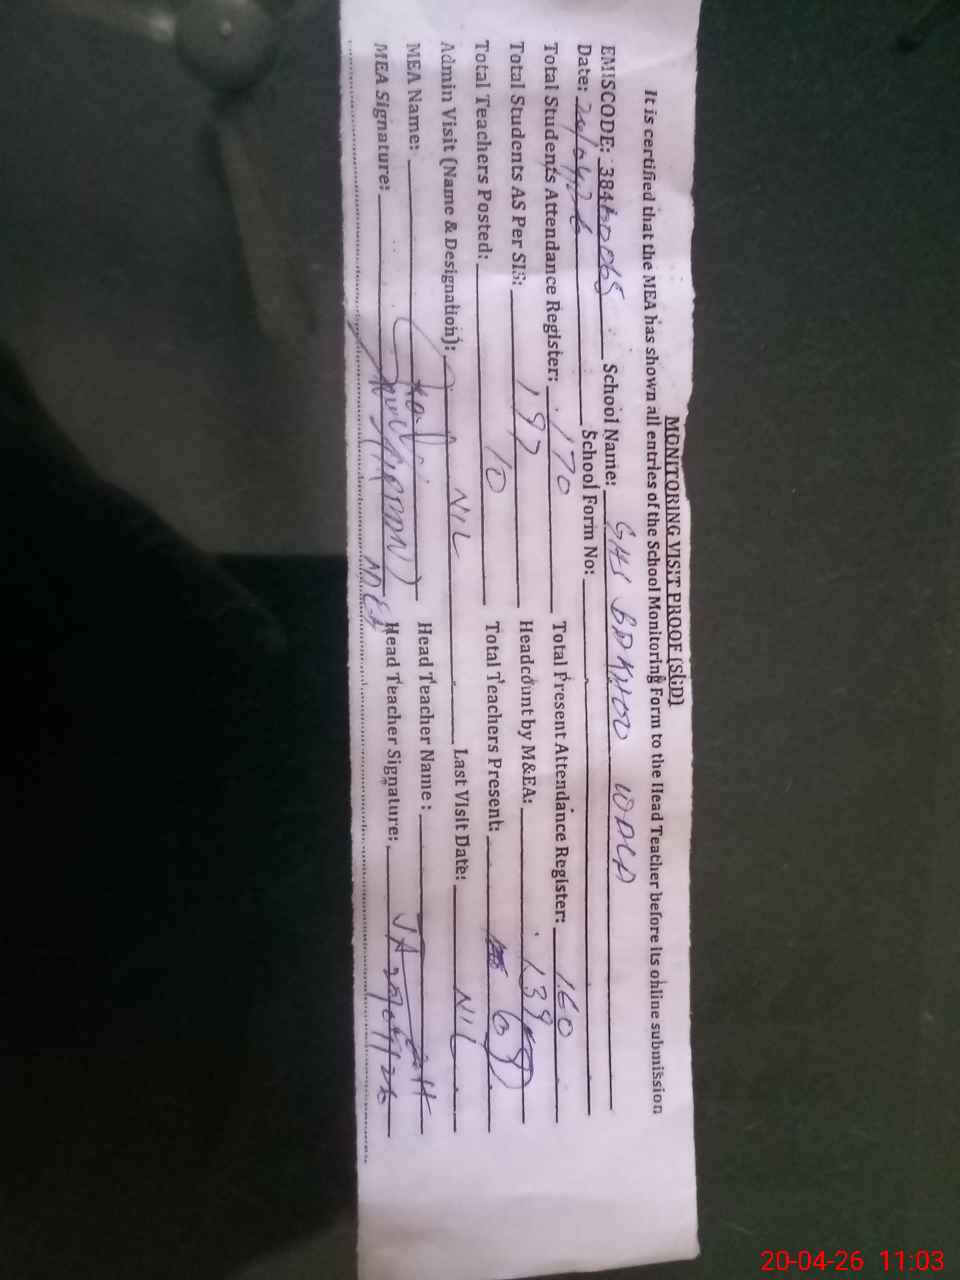 MONITORING VISIT PROOF (SGD)
It is certified that the MEA has shown all entries of the School Monitoring Form to the Head Teacher before its online submission
EMISCODE: 38460065 School Name: GHS BAKHOO WALA
Date: 20/04/26 School Form No:
Total Students Attendance Register: 170 Total Present Attendance Register: 160
Total Students AS Per SIS: 197 Headcount by M&EA: 139
Total Teachers Posted: 10 Total Teachers Present: 6
Admin Visit (Name & Designation): NIL Last Visit Date: NIL
MEA Name: Head Teacher Name :
MEA Signature: MEA Head Teacher Signature: 20/4/26
20-04-26 11:03